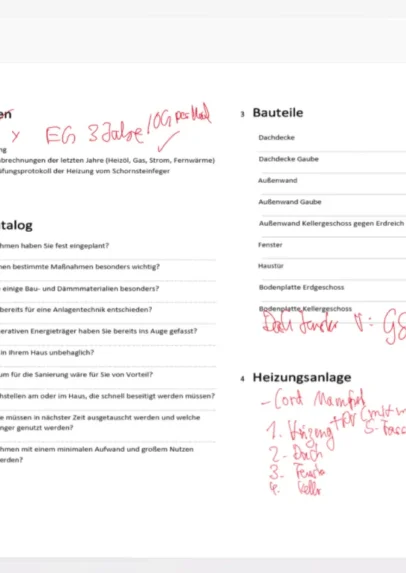 en
EG 3 Jahre/OG per Mail
ng
brechnungen der letzten Jahre (Heizöl, Gas, Strom, Fernwärme)
üfungsprotokoll der Heizung vom Schornsteinfeger
talog
hmen haben Sie fest eingeplant?
nen bestimmte Maßnahmen besonders wichtig?
e einige Bau- und Dämmmaterialien besonders?
bereits für eine Anlagentechnik entschieden?
erativen Energieträger haben Sie bereits ins Auge gefasst?
in Ihrem Haus unbehaglich?
um für die Sanierung wäre für Sie von Vorteil?
hstellen am oder im Haus, die schnell beseitigt werden müssen?
e müssen in nächster Zeit ausgetauscht werden und welche
nger genutzt werden?
hmen mit einem minimalen Aufwand und großem Nutzen
erden?
3 Bauteile
Dachdecke
Dachdecke Gaube
Außenwand
Außenwand Gaube
Außenwand Kellergeschoss gegen Erdreich
Fenster
Haustür
Bodenplatte Erdgeschoss
Bodenplatte Kellergeschoss
4 Heizungsanlage
1. Heizung + PV
2. Dach
3. Fenster
4. Keller